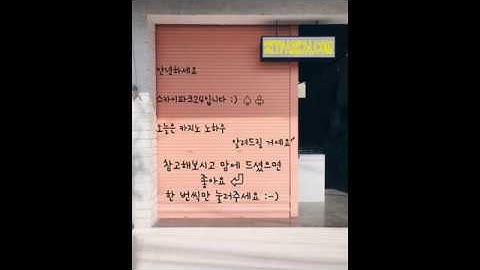 안녕하세요
스카이파크24입니다 :) ♤ ♧
오늘은 카지노 노하우
알려드릴 거에요~
참고해보시고 맘에 드셨으면
좋아요
한 번씩만 눌러주세요 :-)